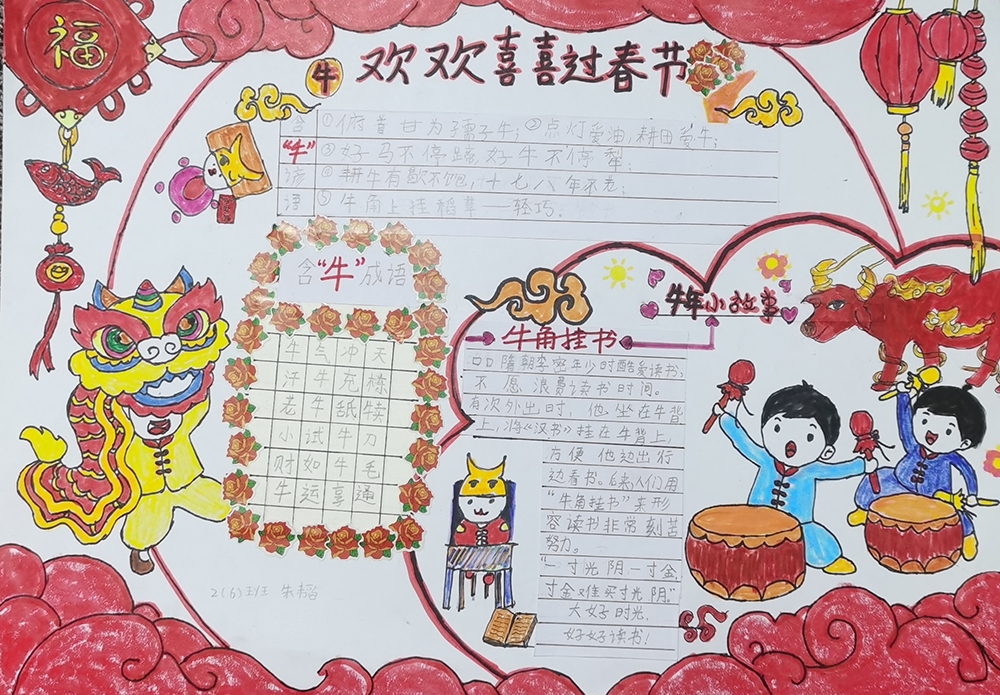 福
牛 欢欢喜喜过春节
含"牛"谚语
①俯首甘为孺子牛；②点灯爱油，耕田爱牛；
③好马不停蹄，好牛不停犁；
④耕牛有歇不饱，十七八年不老；
⑤牛角上挂稻草——轻巧；
含"牛"成语
牛气冲天
汗牛充栋
老牛舐犊
小试牛刀
财如牛毛
牛运亨通
牛年小故事
牛角挂书
口口隋朝李密年少时酷爱读书，
不愿浪费读书时间。
有次外出时，他坐在牛背
上，将《汉书》挂在牛背上，
方便他边出行
边看书。后来，人们用
"牛角挂书"来形
容读书非常刻苦
努力。
"一寸光阴一寸金，
寸金难买寸光阴。"
大好时光，
好好读书！
2(6)班 朱韬